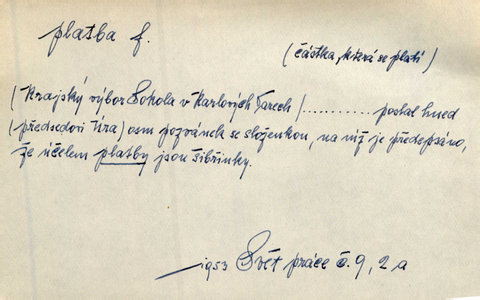 platba f.
(částka, která se platí)
(Krajský výbor Sokola v Karlových Varech) .......... poslal hned
(předsedovi Víra) osm pozvánek se složenkou, na níž je předepsáno,
že účelem platby jsou šibřinky.
1953 Svět práce č. 9, 2 a